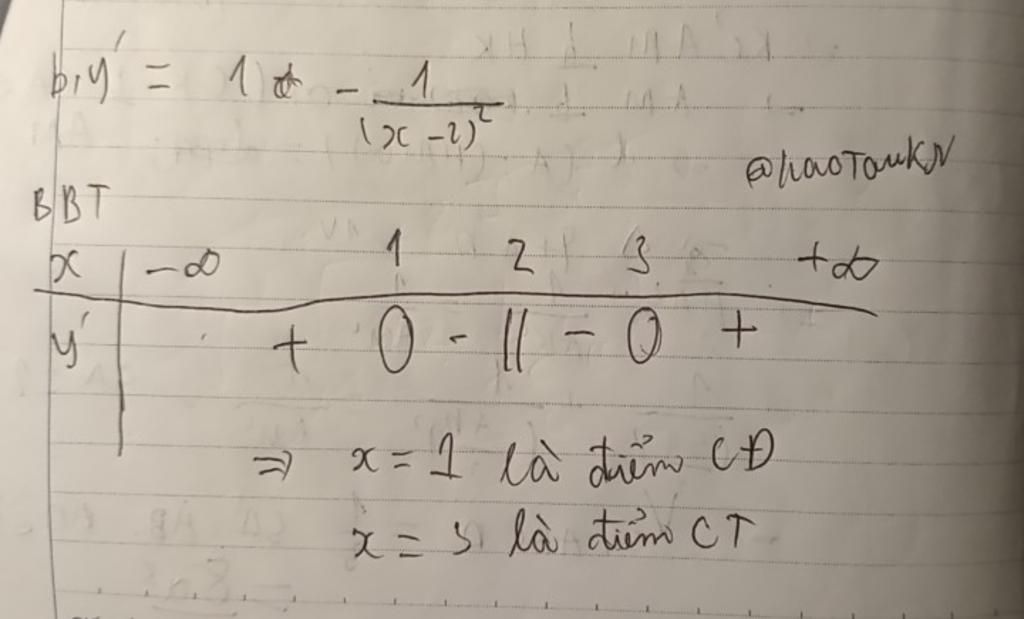 b, y' = 1 - 1/(x - 2)²
@haoTamKN
BBT
x -∞ 1 2 3 +∞
y' + 0 - || - 0 +
⇒ x = 1 là điểm CĐ
x = 3 là điểm CT